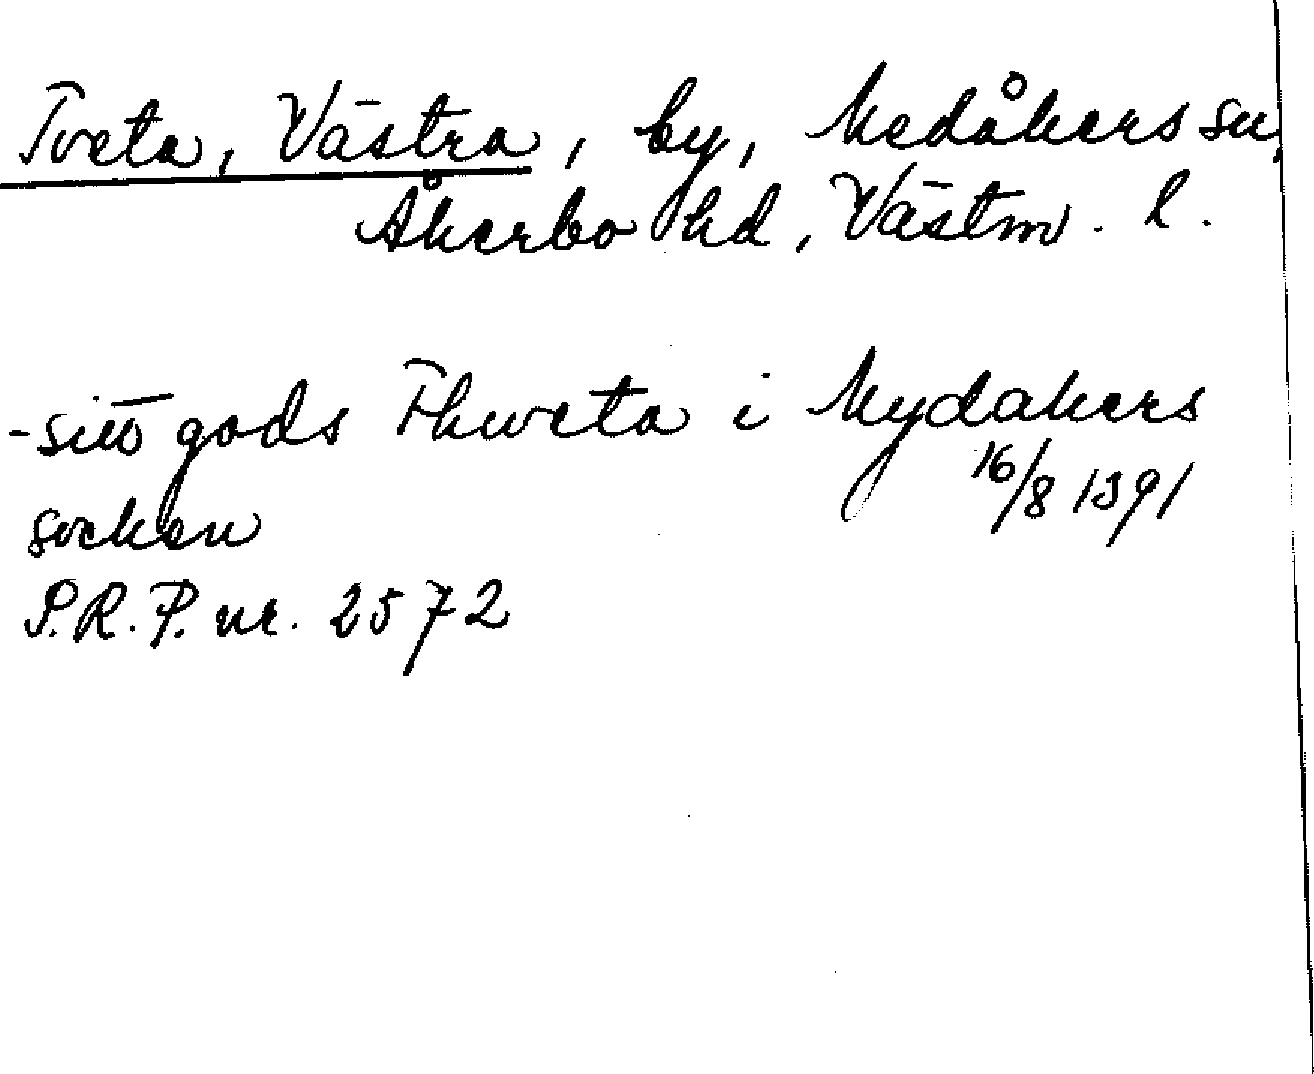 Tveta, Västra, by, Medåkers sn,
Åkerbo hd, Västm. l.
- sitt gods Thweta i Mydakers
16/8 1391
socken
P.R.P. nr. 2572